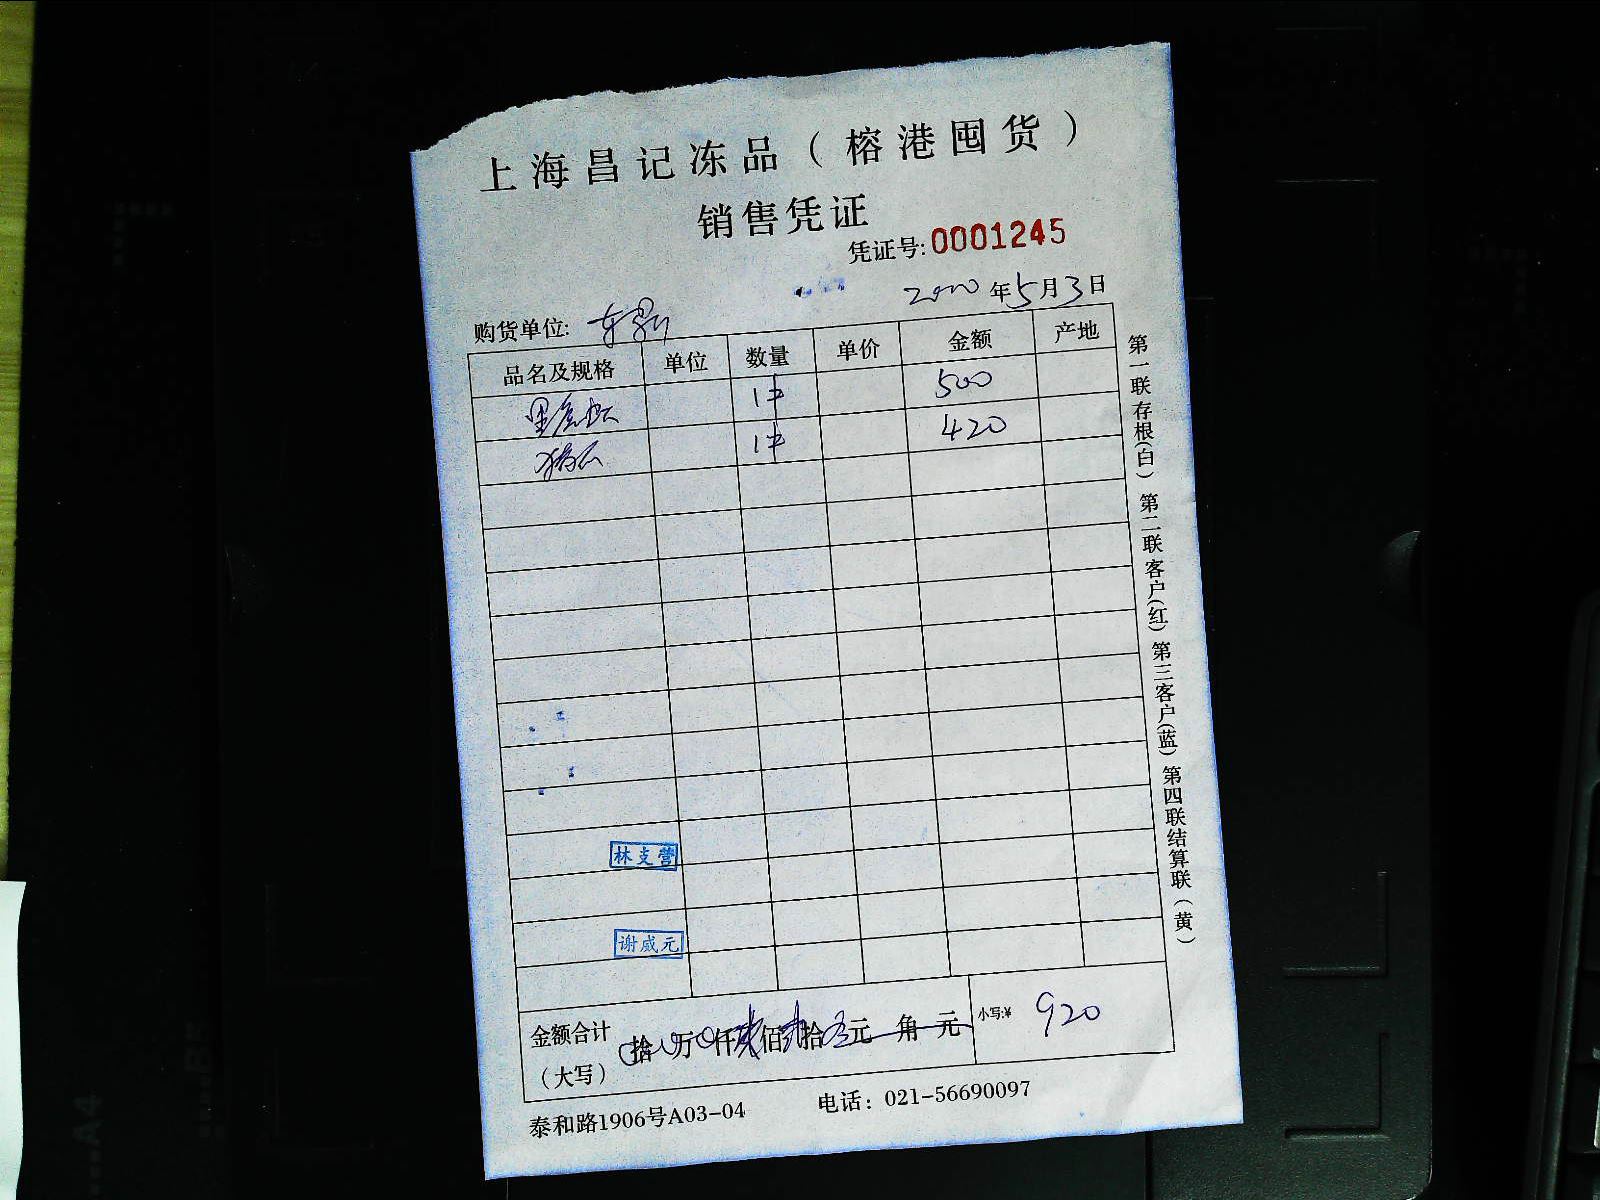 上海昌记冻品（榕港囤货）
销售凭证
凭证号:0001245
年5月3日
购货单位:
品名及规格 单位 数量 单价 金额 产地
1件 500
1件 420
林支营
谢威元
金额合计（大写） 拾 万 仟 佰 拾 元 角 元 小写:¥ 920
泰和路1906号A03-04 电话：021-56690097
第一联存根(白) 第二联客户(红) 第三客户(蓝) 第四联结算联（黄）